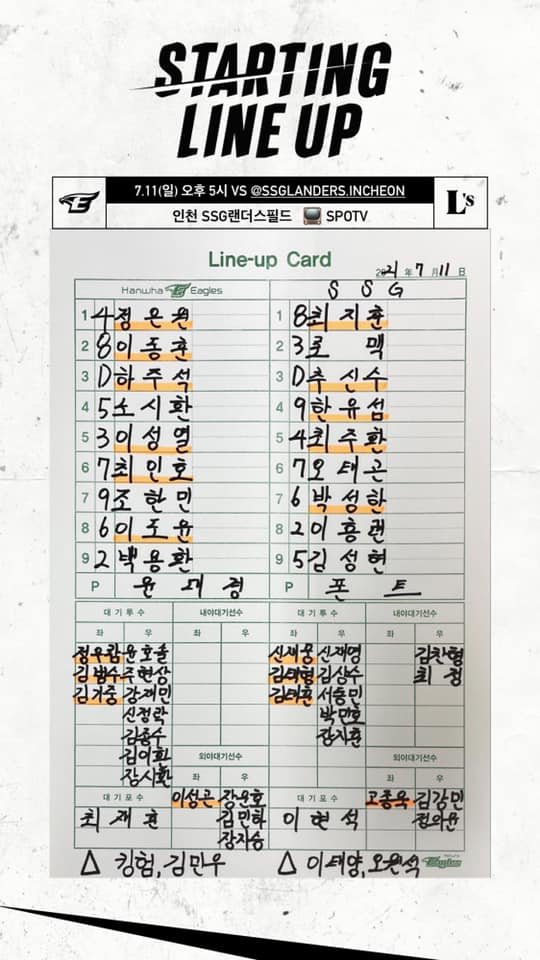 STARTING
LINE UP
7.11(일) 오후 5시 VS @SSGLANDERS.INCHEON
인천 SSG랜더스필드 SPOTV
L's
Line-up Card
2021 년 7 월 11 일
Hanwha Eagles S S G
1 4 정은원 1 8 최지훈
2 8 이동훈 2 3 로맥
3 D 하주석 3 D 추신수
4 5 노시환 4 9 한유섬
5 3 이성열 5 4 최주환
6 7 최인호 6 7 오태곤
7 9 조한민 7 6 박성한
8 6 이도윤 8 2 이흥련
9 2 백용환 9 5 김성현
P 윤대경 P 폰트
대기투수 내야대기선수 대기투수 내야대기선수
좌 우 좌 우 좌 우 좌 우
정우람 윤호솔 신재웅 신재영 김찬형
김범수 주현상 김태형 김상수 최정
김기중 강재민 김태훈 서동민
신정락 박민호
김종수 장지훈
김이환
장시환
외야대기선수 외야대기선수
좌 우 좌 우
대기포수 이성곤 장운호 대기포수 고종욱 김강민
최재훈 김민하 이현석 정의윤
장지승
△ 킹험, 김민우 △ 이태양, 오원석
Eagles